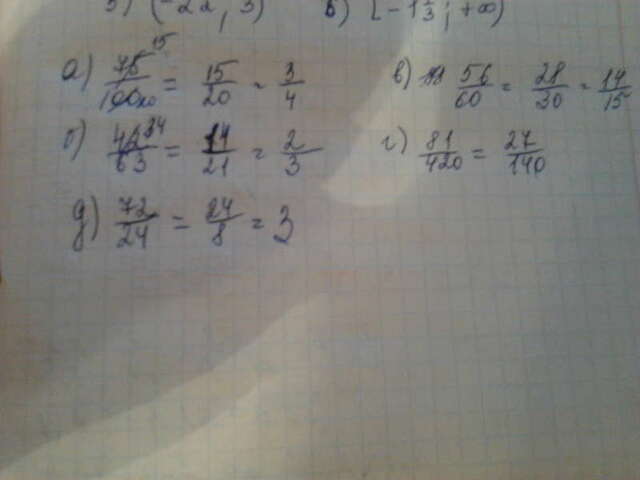 б) (-22; 3) в) [-1 1/3; +∞)
а) 75/100 = 15/20 = 3/4 в) 56/60 = 28/30 = 14/15
б) 42/63 = 14/21 = 2/3 г) 81/420 = 27/140
д) 72/24 = 24/8 = 3